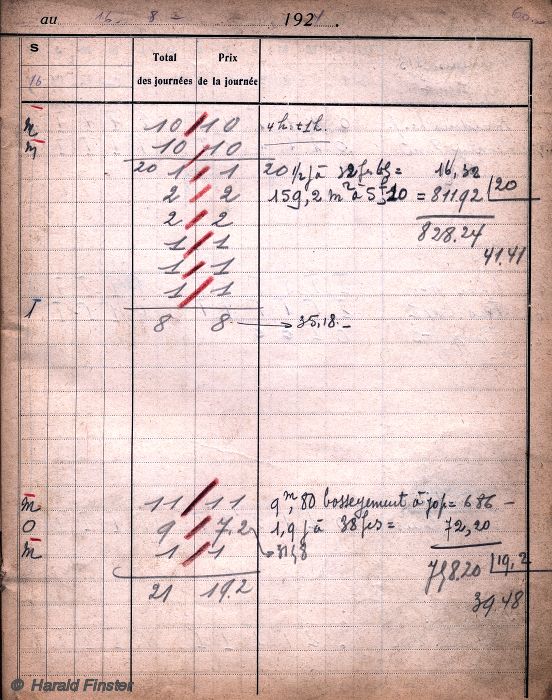 au 16. 8 = 192 1. 60.-
S Total Prix
16 des journées de la journée
m 10 10 4h. + 1h.
m 10 10
20 1 1 20 1/2 j à = 16,32
2 2 159,2 m² à 5f,10 = 811.92 20
2 2 828.24
1 1 41.41
1 1
1 1
T
8 8 → 35,18.-
m 11 11 9m,80 bosseyement à 70f = 686 -
O 9 7.2 1,9 j à 38frs = 72,20
m 1 1
758.20 19,2
21 19.2 39.48
© Harald Finster